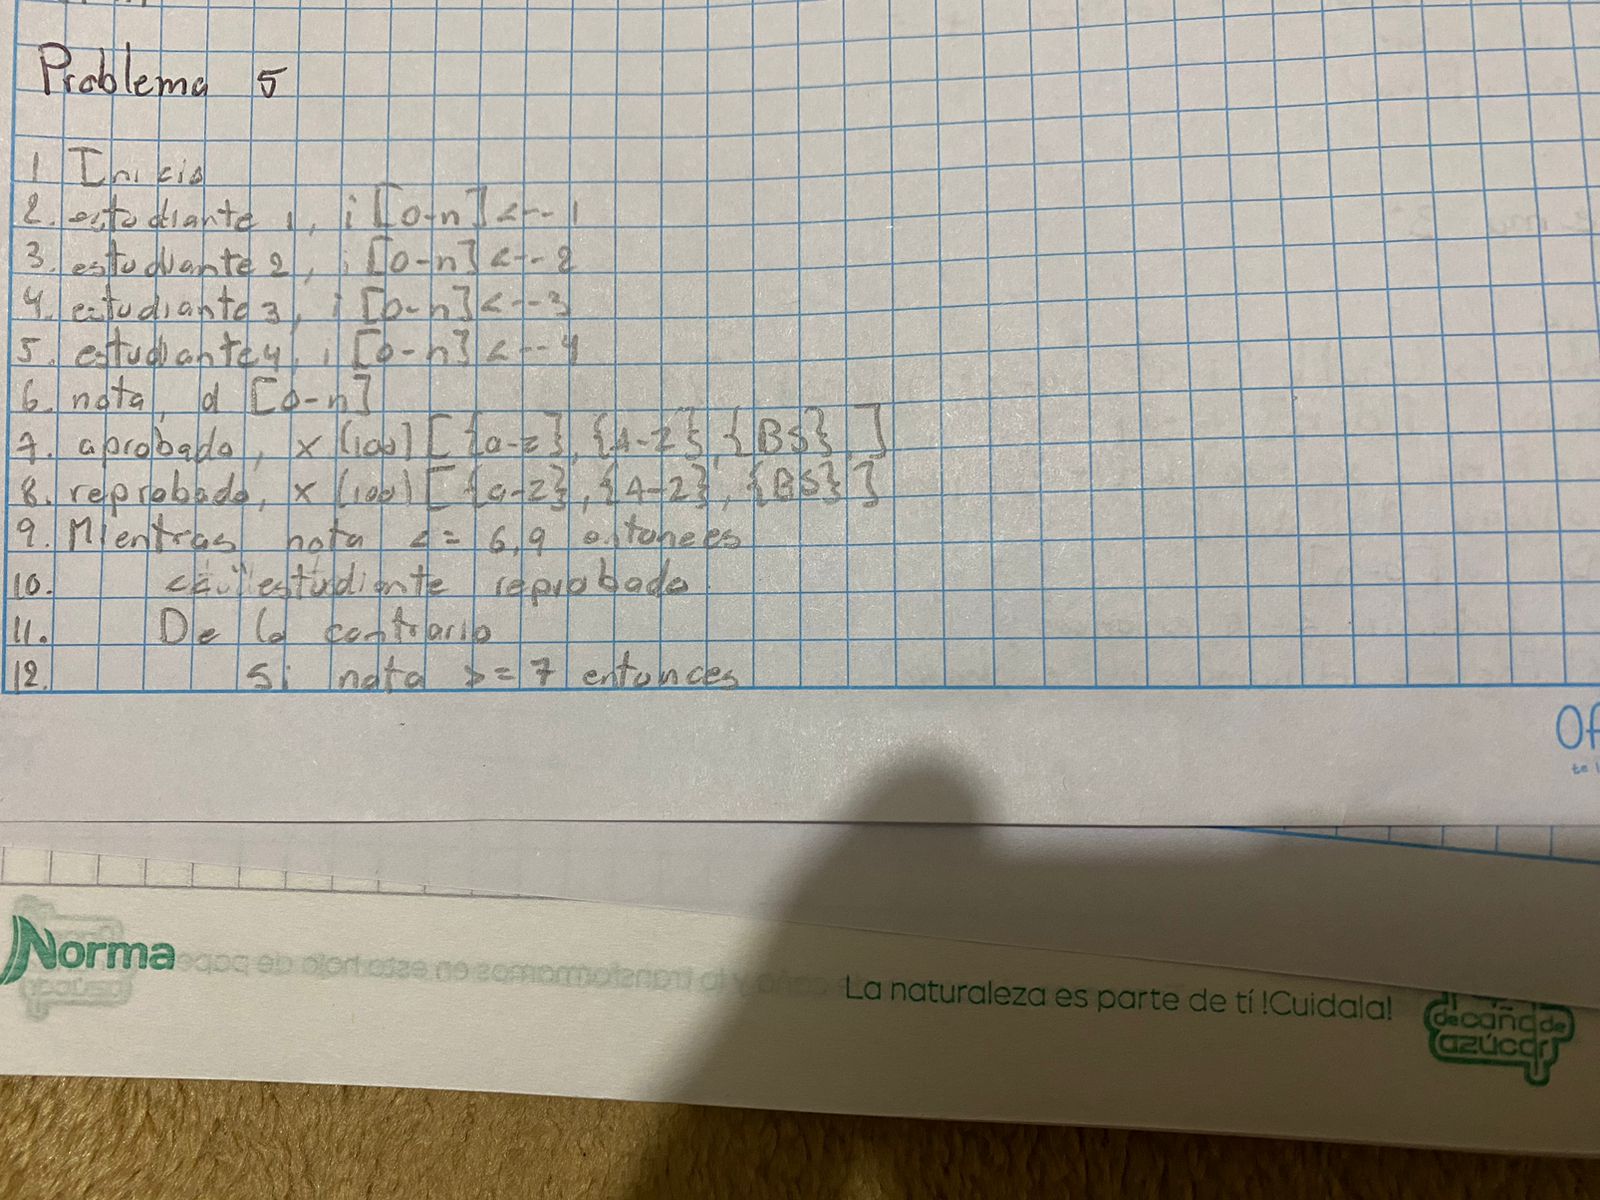 Problema 5
1 Inicio
2. estudiante 1, i [0-n] <-- 1
3. estudiante 2, i [0-n] <-- 2
4. estudiante 3, i [0-n] <-- 3
5. estudiante 4, i [0-n] <-- 4
6. nota, d [0-n]
7. aprobado, x (100) [{a-z}, {A-Z}, {BS}, ]
8. reprobado, x (100) [{a-z}, {A-Z}, {BS}]
9. Mientras nota <= 6,9 entonces
10. << "estudiante reprobado
11. De lo contrario
12. Si nota >= 7 entonces
Norma
La naturaleza es parte de tí !Cuidala!
de caña de
azúcar